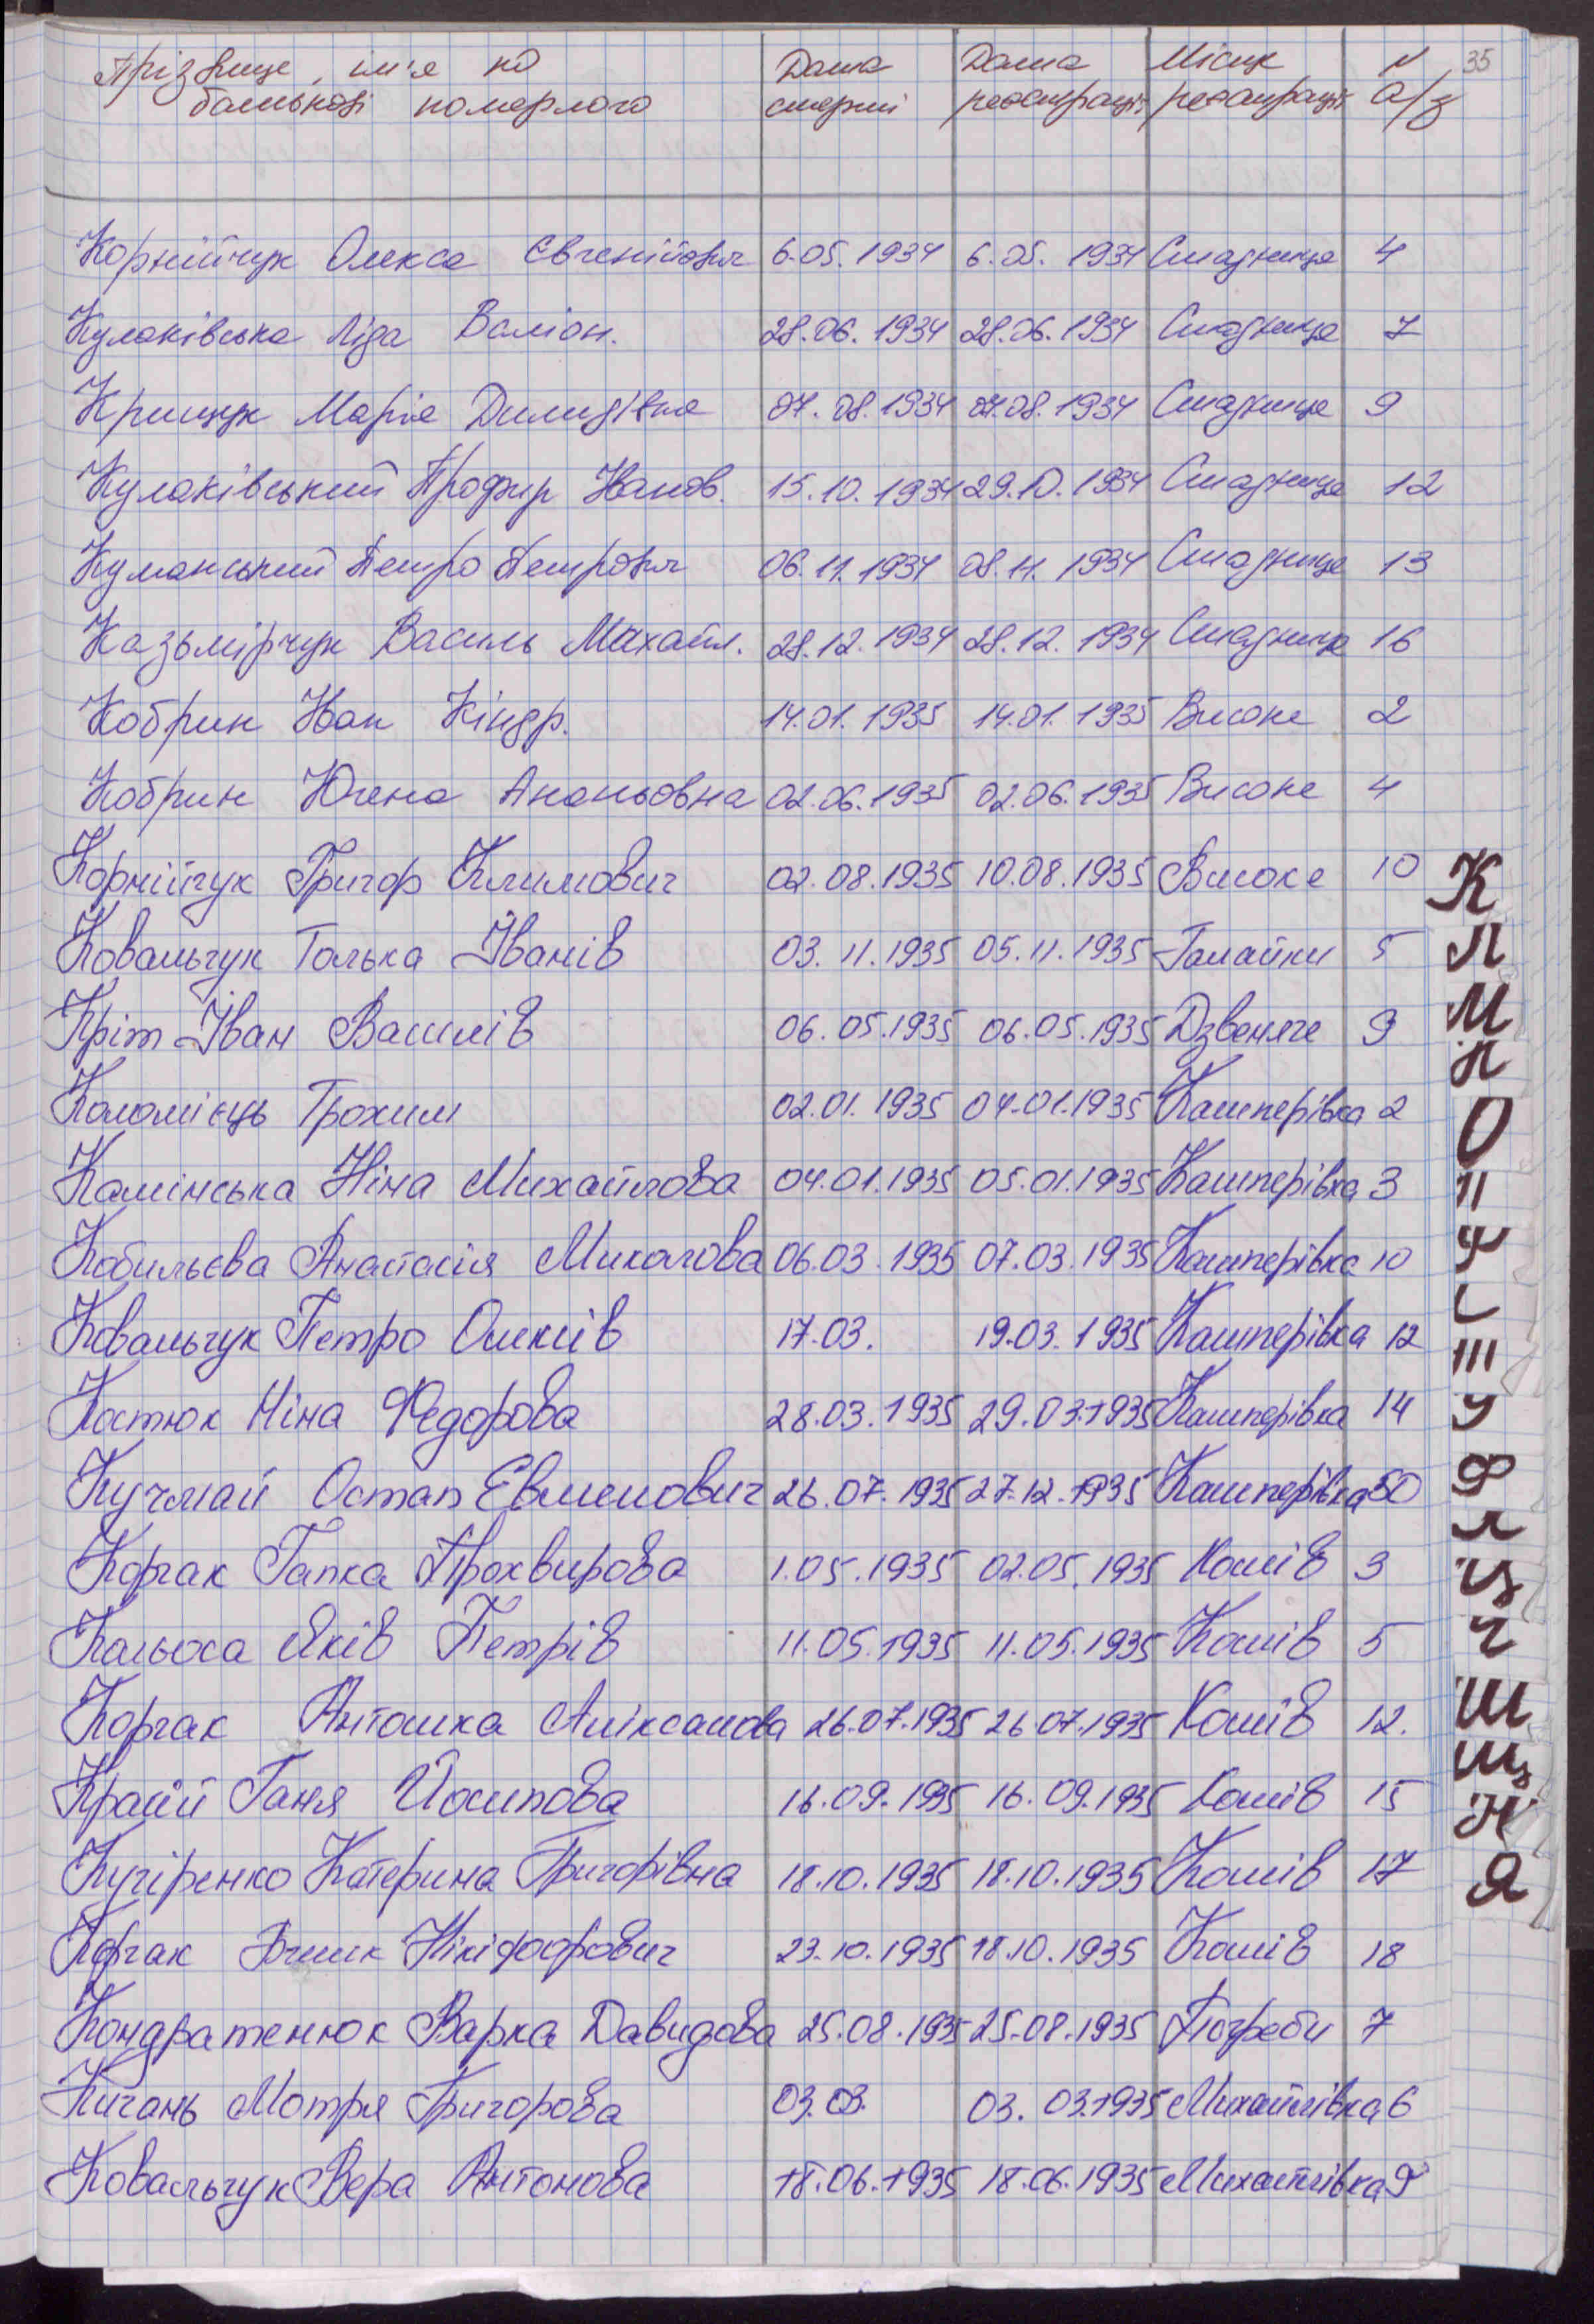 Прізвище, ім'я по Дата Дата Місце N 35
батькові померлого смерті реєстрації реєстрації а/з
Корнійчук Олекса Євгенійович 6.05.1934 6.05.1934 Стадниця 4
Кулаківська Ліда Валіон. 28.06.1934 28.06.1934 Стадниця 7
Крищук Марія Дилидівна 07.08.1934 07.08.1934 Стадниця 9
Кулаківський Профир Иванов. 15.10.1934 29.10.1934 Стадниця 12
Куманський Петро Петрович 06.11.1934 08.11.1934 Стадниця 13
Казьмірчук Василь Михайл. 28.12.1934 28.12.1934 Стадниця 16
Кобрин Иван Кіндр. 14.01.1935 14.01.1935 Високе 2
Кобрин Югена Ананьовна 02.06.1935 02.06.1935 Високе 4
Корнійчук Григор Климович 02.08.1935 10.08.1935 Високе 10
Ковальчук Голька Іванів 03.11.1935 05.11.1935 Галайки 5
Кріт Іван Василів 06.05.1935 06.05.1935 Дзвеняче 9
Коломієць Трохим 02.01.1935 04.01.1935 Кашперівка 2
Камінська Ніна Михайлова 04.01.1935 05.01.1935 Кашперівка 3
Кобильєва Анатасія Миколова 06.03.1935 07.03.1935 Кашперівка 10
Ковальчук Петро Олексів 17.03. 19.03.1935 Кашперівка 12
Костюк Ніна Федорова 28.03.1935 29.03.1935 Кашперівка 14
Кучмай Остап Евменович 26.07.1935 27.12.1935 Кашперівка 50
Корчак Гапка Прохвирова 1.05.1935 02.05.1935 Кошів 3
Кальоса Яків Петрів 11.05.1935 11.05.1935 Кошів 5
Корчак Антошка Аліксанова 26.07.1935 26.07.1935 Кошів 12.
Краій Ганя Йосипова 16.09.1935 16.09.1935 Кошів 15
Кучіренко Катерина Григорівна 18.10.1935 18.10.1935 Кошів 17
Корчак Нікіфорович 23.10.1935 18.10.1935 Кошів 18
Кондратенюк Варка Давидова 25.08.1935 25.08.1935 Погреби 7
Кичань Мотря Григорова 03.03. 03.03.1935 Михайлівка 6
Ковальчук Вера Антонова 18.06.1935 18.06.1935 Михайлівка 9
К
Л
М
Н
О
П
Р
С
Т
У
Ф
Х
Ц
Ч
Ш
Щ
Ю
Я